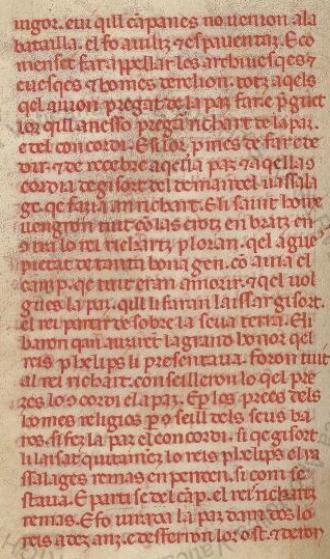 uigor. em qill cāpanes no uenion. ala
batailla. el fo auiliz ⁊ espauentaz. E co
menset far apellar los archiuesqes ⁊
euesqes ⁊ homes de relion. totz aqels
qel auion pregat de la paz far. e ꝓguet
los qill anesso pregar richart de la paz.
e del concordi. Es il or ꝓmes de far e de
dir. ⁊ de recebre aqella paz ⁊ aqella ꝯ
cordia de gisort del deman del uassala
ge. qe faria an richart. E li saint home
uengron tuit cō las crotz en bratz en
ꝯtra lo rei richartz ploran. qel agues
pietat de tanta bona gen. cō auia el
camp. qe tuit eran amorir. ⁊ qel uol
gues la paz. qill li faran laissar gisort.
el rei partir de sobre la seua terra. E li
baron qan auziret la grand honor qel
reis phelips li presentaua. foron tuit
al rei richart. conseilleron lo qel pre
zes lo ꝯcordi e la paz. E ꝑ los precs dels
homes religios ꝑ ꝯseill dels seus ba
ros. si fez la paz el concordi. si qe gisort
li laisar quitamez lo reis phelips el ua
ssalages remas en penden. si com se
staua. E parti se del cāp. el rei richartz
remas. E fo iurada la paz dam dos los
reis a dez anz. e desferion lor ost. ⁊ deron